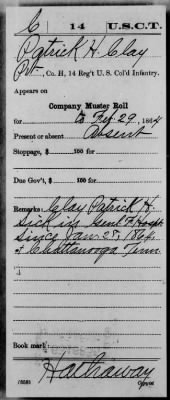 C 14 U.S.C.T.
Patrick H. Clay
Pvt., Co. H, 14 Reg't U. S. Col'd Infantry.
Appears on
Company Muster Roll
for to Feb 29, 1864
Present or absent Absent
Stoppage, $ 100 for
Due Gov't, $ 100 for
Remarks: Clay Patrick H
Sick in Genl F. Hospt
since Jan. 27, 1864,
at Chattanooga Tenn
Book mark:
Hathaway
(858) Copyist.